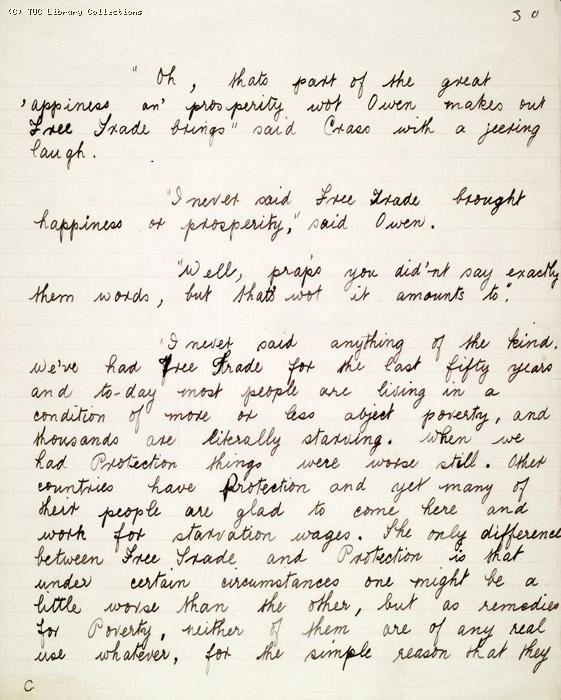 (C) TUC Library Collections
30
"Oh, thats part of the great
'appiness an' prosperity wot Owen makes out
Free Trade brings" said Crass with a jeering
laugh.
"I never said Free Trade brought
happiness or prosperity," said Owen.
"Well, praps you did'nt say exactly
them words, but thats wot it amounts to".
"I never said anything of the kind.
We've had Free Trade for the last fifty years
and to-day most people are living in a
condition of more or less abject poverty, and
thousands are literally starving. When we
had Protection things were worse still. Other
countries have Protection and yet many of
their people are glad to come here and
work for starvation wages. The only difference
between Free Trade and Protection is that
under certain circumstances one might be a
little worse than the other, but as remedies
for Poverty, neither of them are of any real
use whatever, for the simple reason that they
C